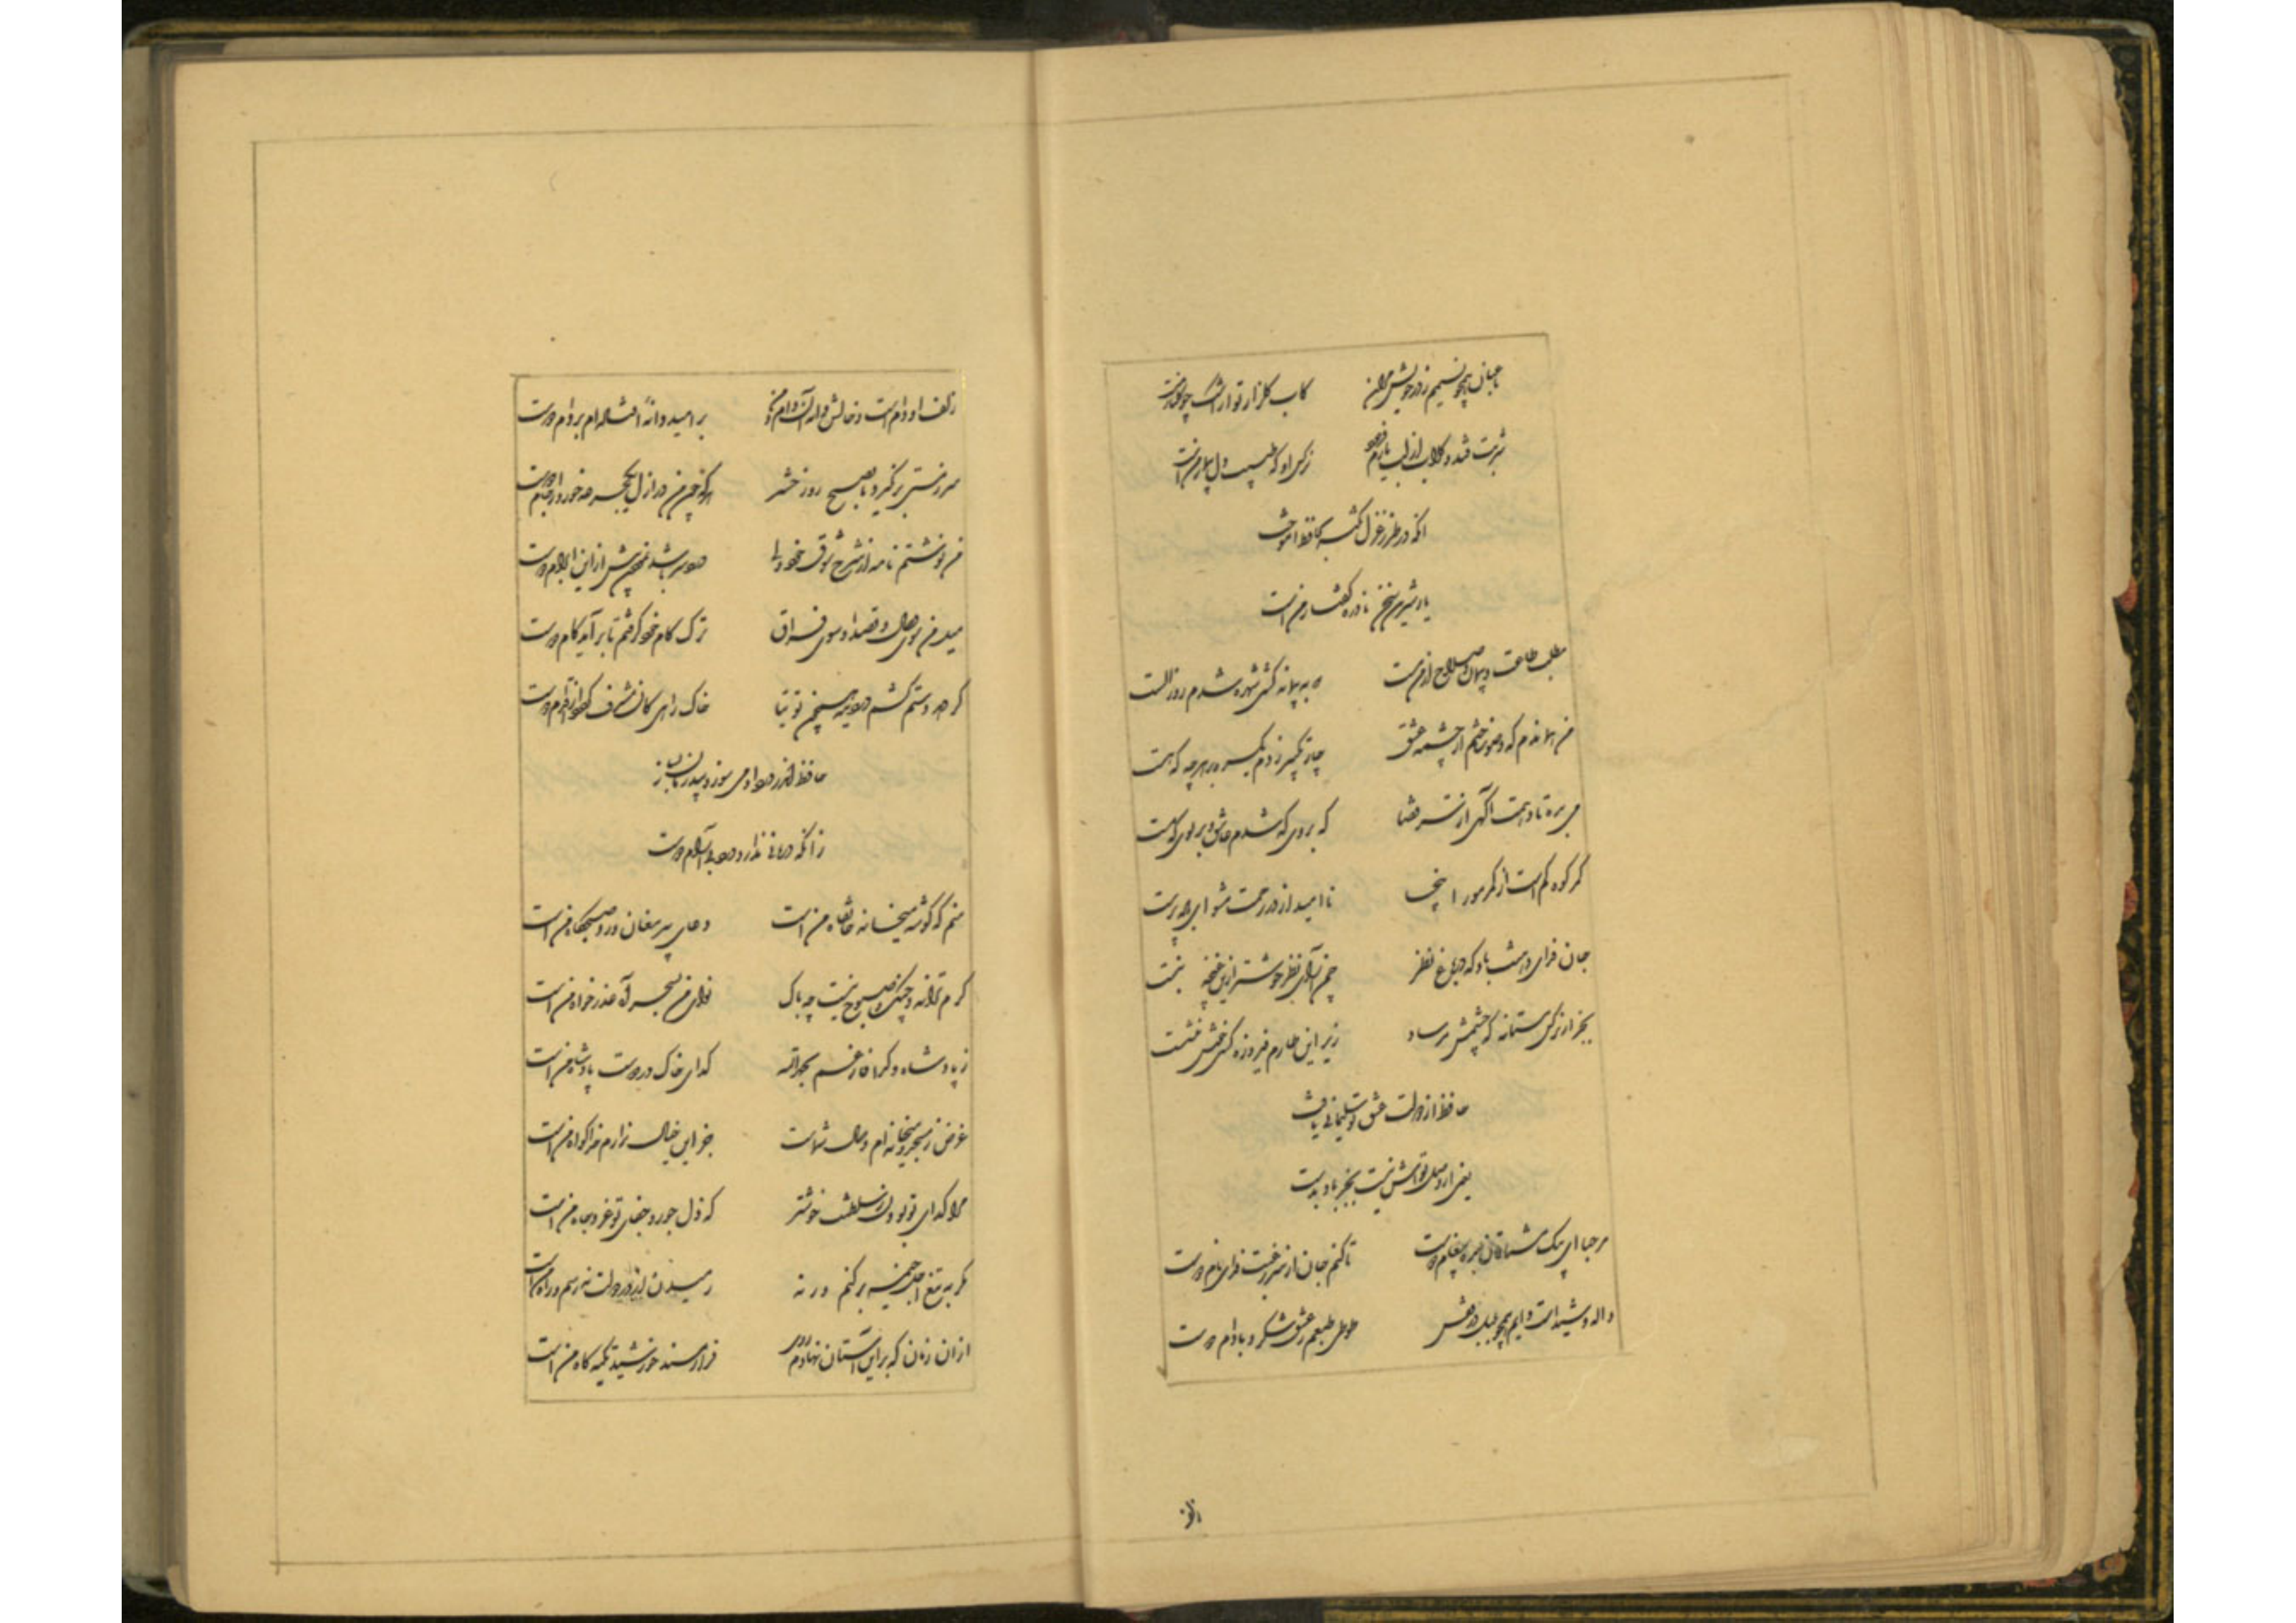 باغبان همچو نسیمم ز در خویش مران کاب گلزار تو از اشک چو گلنار منست
شربت قند و گلاب از لب یارم فرمود نرگس او که طبیب دل بیمار من است
آنکه در طرز غزل نکته به حافظ آموخت
یار شیرین سخن نادره گفتار من است
مطلب طاعت و پیمان و صلاح از من مست که به پیمانه کشی شهره شدم روز الست
من هماندم که وضو ساختم از چشمه عشق چار تکبیر زدم یکسره بر هر چه که هست
می بده تا دهمت آگهی از سر قضا که بروی که شدم عاشق و بر بوی که مست
کمر کوه کم است از کمر مور اینجا ناامید از در رحمت مشو ای باده پرست
جان فدای دهنت باد که در باغ نظر چمن آرای نظر خوشتر ازین غنچه نبست
بجز آن نرگس مستانه که چشمش مرساد زیر این طارم فیروزه کسی خوش ننشست
حافظ از دولت عشق تو سلیمانی یافت
یعنی از وصل تواش نیست بجز باد بدست
مرحبا ای پیک مشتاقان بده پیغام دوست تا کنم جان از سر رغبت فدای نام دوست
واله و شیداست دایم همچو بلبل در قفس طوطی طبعم ز عشق شکر و بادام دوست
زلف
زلف او دام است و خالش دانه آن دام و من بر امید دانه افتاده‌ام بر دام دوست
سر ز مستی بر نگیرد تا بصبح روز حشر هر که چون من در ازل یکجرعه خورد از جام دوست
من نوشتم نامه از شرح شوق خود ولی دردسر باشد نمودن بیش ازاین ابرام دوست
میل من سوی وصال و قصد او سوی فراق ترک کام خود گرفتم تا بر آید کام دوست
گر دهد دستم کشم در دیده همچون توتیا خاک راهی کان مشرف گردد از اقدام دوست
حافظ اندر درد او می سوز و بیدرمان بساز
زانکه درمانی ندارد درد بی آرام دوست
منم که گوشه میخانه خانقاه من است دعای پیر مغان ورد صبحگاه من است
گرم ترانه و چنگ و صبوح نیست چه باک نوای من بسحر آه عذرخواه من است
ز پادشاه و گدا فارغم بحمدالله گدای خاک در دوست پادشاه من است
غرض ز مسجد و میخانه‌ام وصال شماست جز این خیال ندارم خدا گواه من است
مرا گدای تو بودن ز سلطنت خوشتر که ذل جور و جفای تو عز و جاه من است
مگر به تیغ اجل خیمه بر کنم ورنه رمیدن از در دولت نه رسم و راه من است
ازان زمان که بر این آستان نهادم روی فراز مسند خورشید تکیه گاه من است